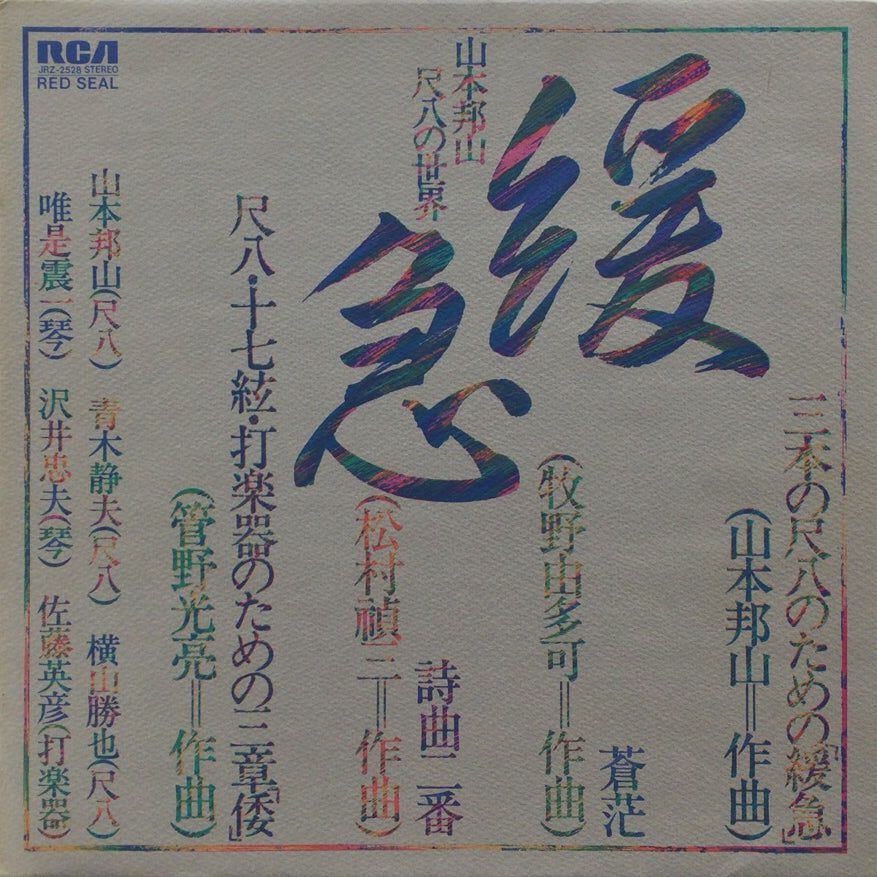 RCA
JRZ-2528 STEREO
RED SEAL
山本邦山
尺八の世界
緩
急
三本の尺八のための「緩急」
（山本邦山＝作曲）
蒼茫
（牧野由多可＝作曲）
詩曲二番
（松村禎三＝作曲）
尺八・十七絃・打楽器のための三章「倭」
（管野光亮＝作曲）
山本邦山（尺八）　青木静夫（尺八）　横山勝也（尺八）
唯是震一（琴）　沢井忠夫（琴）　佐藤英彦（打楽器）